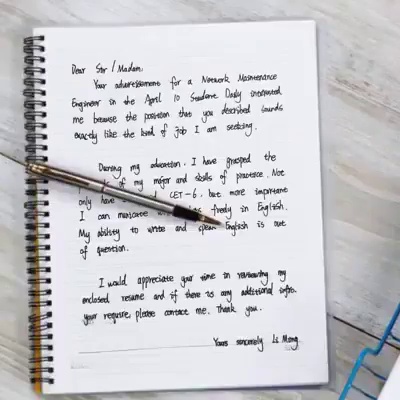 Dear Sir / Madam.
Your advertisement for a Network Maintenance
Engineer in the April 10 Student Daily interested
me because the position that you described sounds
exactly like the kind of job I am seeking.
During my education. I have grasped the
of my major and skills of practice. Not
only have CET-6. but more important
I can freely in English.
My ability to write and speak English is out
of question.
I would appreciate your time in reviewing my
enclosed resume and if there is any additional info.
your require, please contact me. Thank you.
Yours sincerely Li Mong